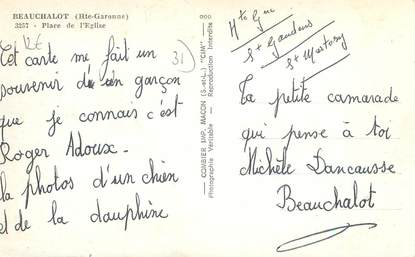 BEAUCHALOT (Hte-Garonne)
3257 - Place de l'Eglise
Cet carte me fait un
souvenir d'un garçon
que je connais c'est
Roger Adoux -
la photos d'un chien
et de la dauphine
31
COMBIER IMP. MACON (S.-et-L.) "CIM"
Photographie Véritable — Reproduction Interdite
Hte Gne
St Gaudens
St Martory
Ta petite camarade
qui pense à toi
Michèle Dancausse
Beauchalot